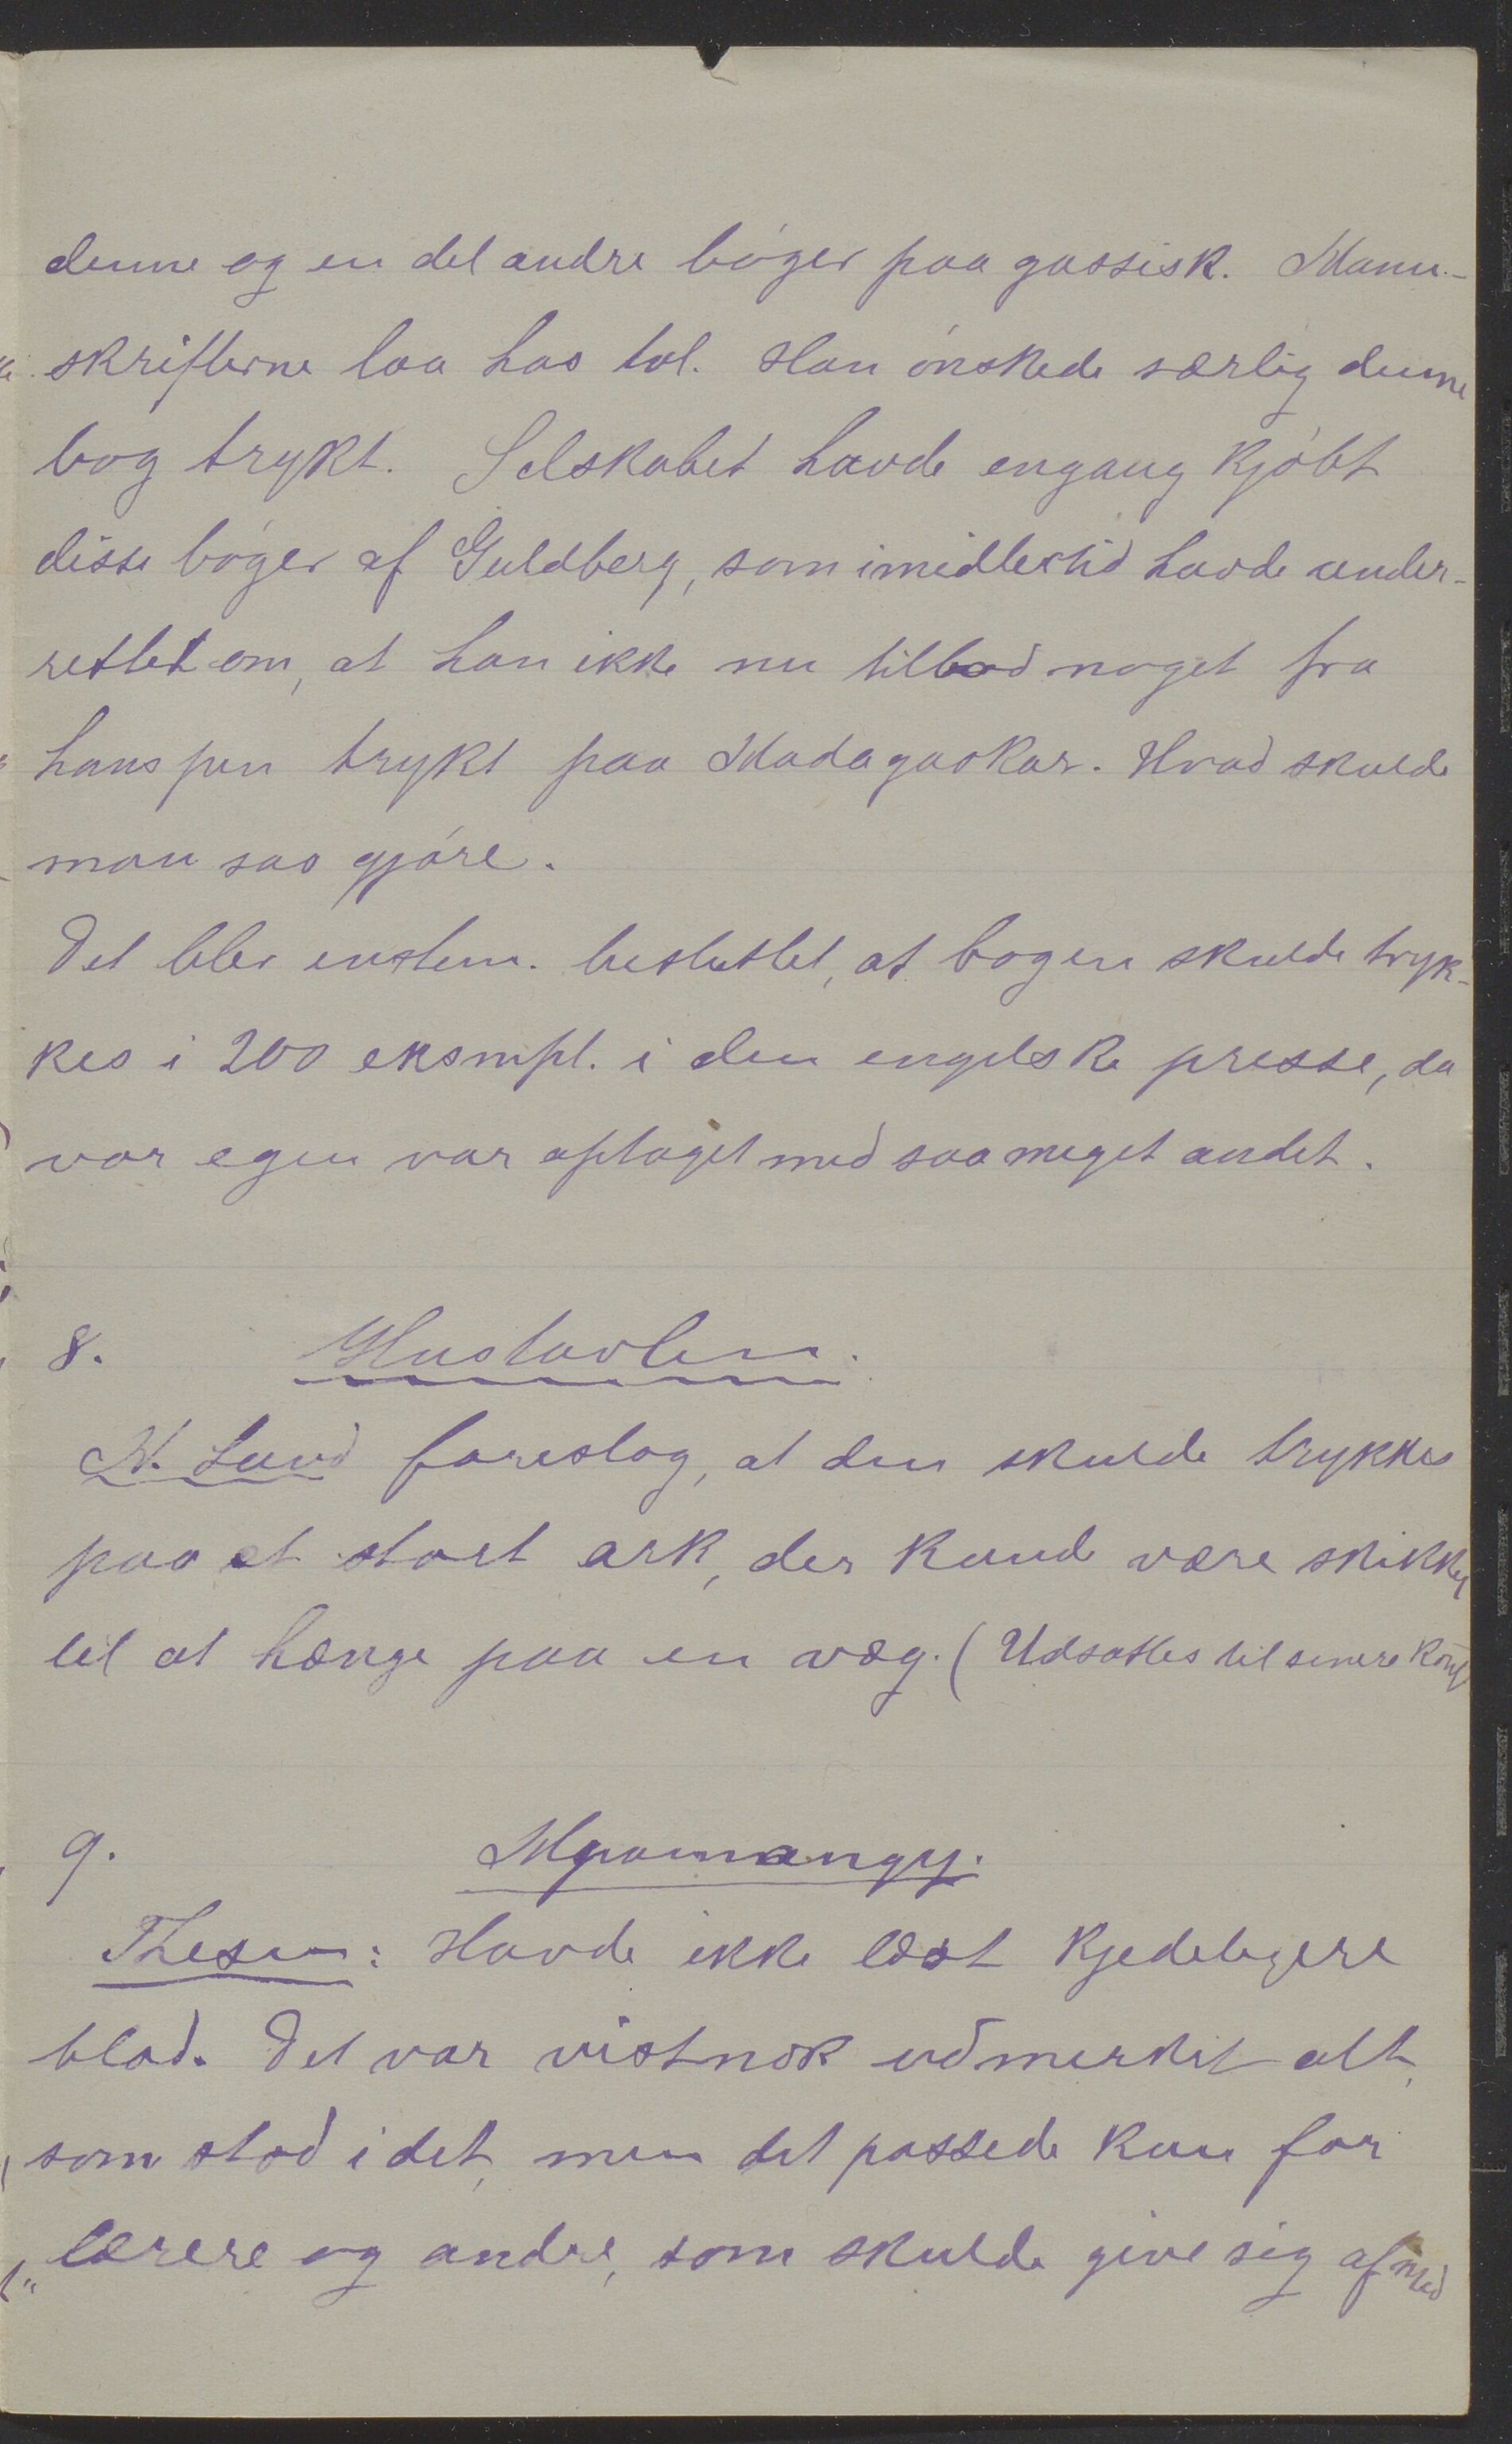 denne og en del andre bøger paa gassisk. Manu-
skrifterne laa hos tal. Han ønskede særlig denne
bog trykt. Selskabet havde engang kjøbt
disse bøger af Guldberg, som imidlertid havde under-
rettet om, at han ikke nu tillod noget fra
hans pen trykt paa Madagaskar. Hvad skulde
man saa gjøre.
Det blev enstem. besluttet, at bogen skulde tryk-
kes i 200 eksmpl. i den engelske presse, da
vor egen var optaget med saa meget andet.
8. Hustavlen.
N. Lund foreslog, at den skulde trykkes
paa et stort ark, der kunde være skikket
til at hænge paa en væg. (Udsattes til senere konf
9. Mpamangy.
Thesen: Havde ikke læst kjedeligere
blad. Det var vistnok udmerket alt,
som stod i det, men det passede kun for
lærere og andre, som skulde give sig af med